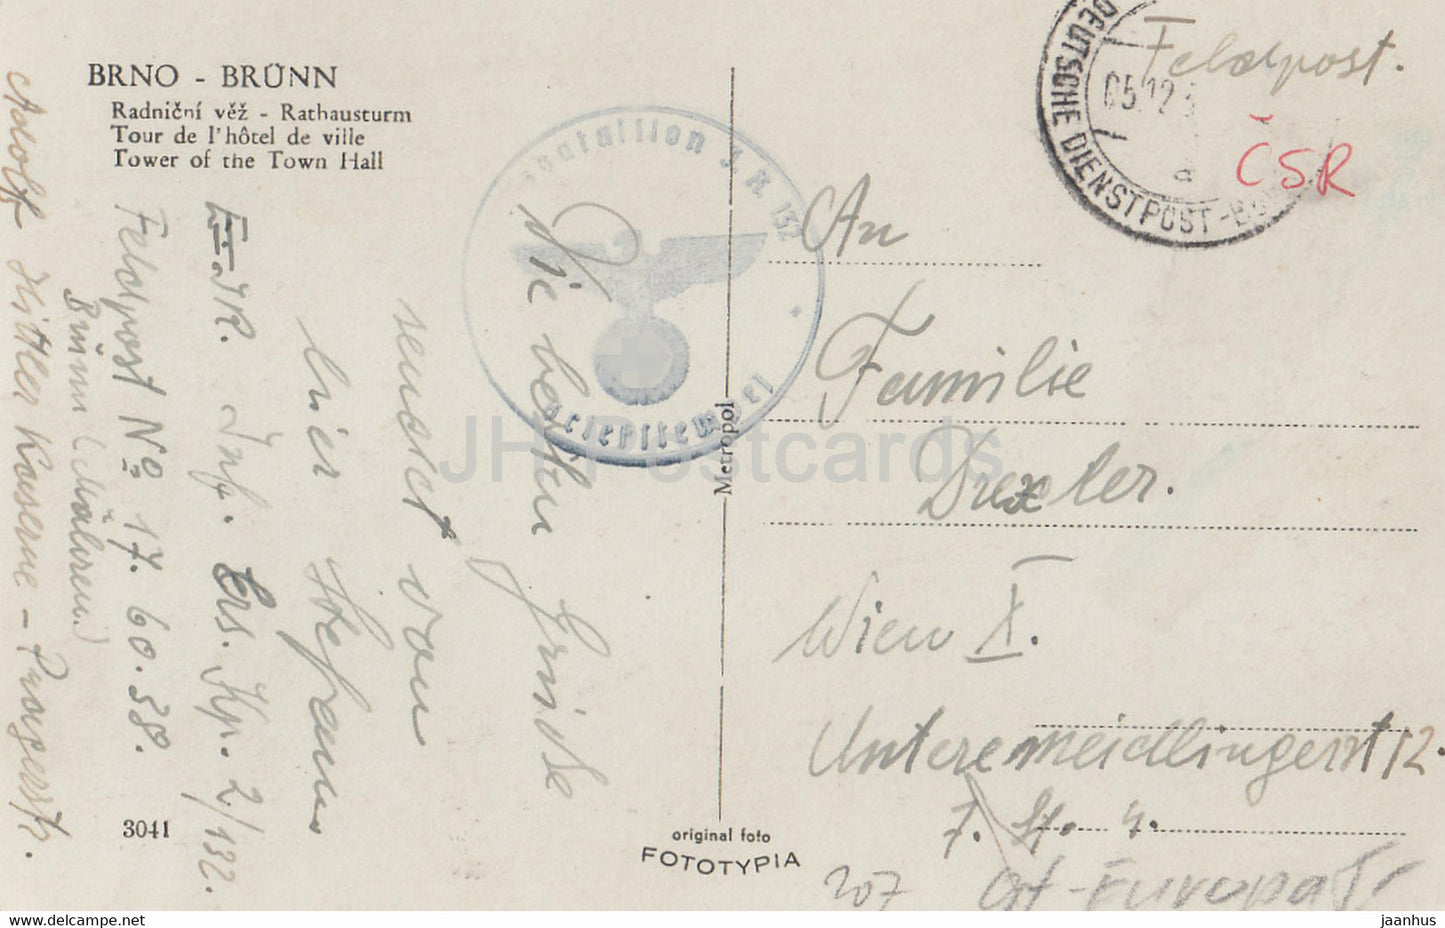 BRNO - BRÜNN
Radniční věž - Rathausturm
Tour de l'hôtel de ville
Tower of the Town Hall
Feldpost.
DEUTSCHE DIENSTPOST-
05.12.3
ČSR
bataillon J. R. 132
Briefstempel
An
Familie
Drexler.
Wien X.
Unteremeidlingerst 12.
7. St. 4.
Die besten Grüße
sendet von
hier Stefann
J.R. Inf. Ers. Kp. 2/132.
Feldpost No 17.60.38.
Brünn (Mähren)
Adolf Hitler Kaserne - Pragerstr.
Metropol
3041
original foto
FOTOTYPIA
207 Ost-Europa
JH Postcards
www.delcampe.net
jaanhus